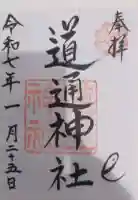 奉拝
道通神社
令和七年一月二十五日